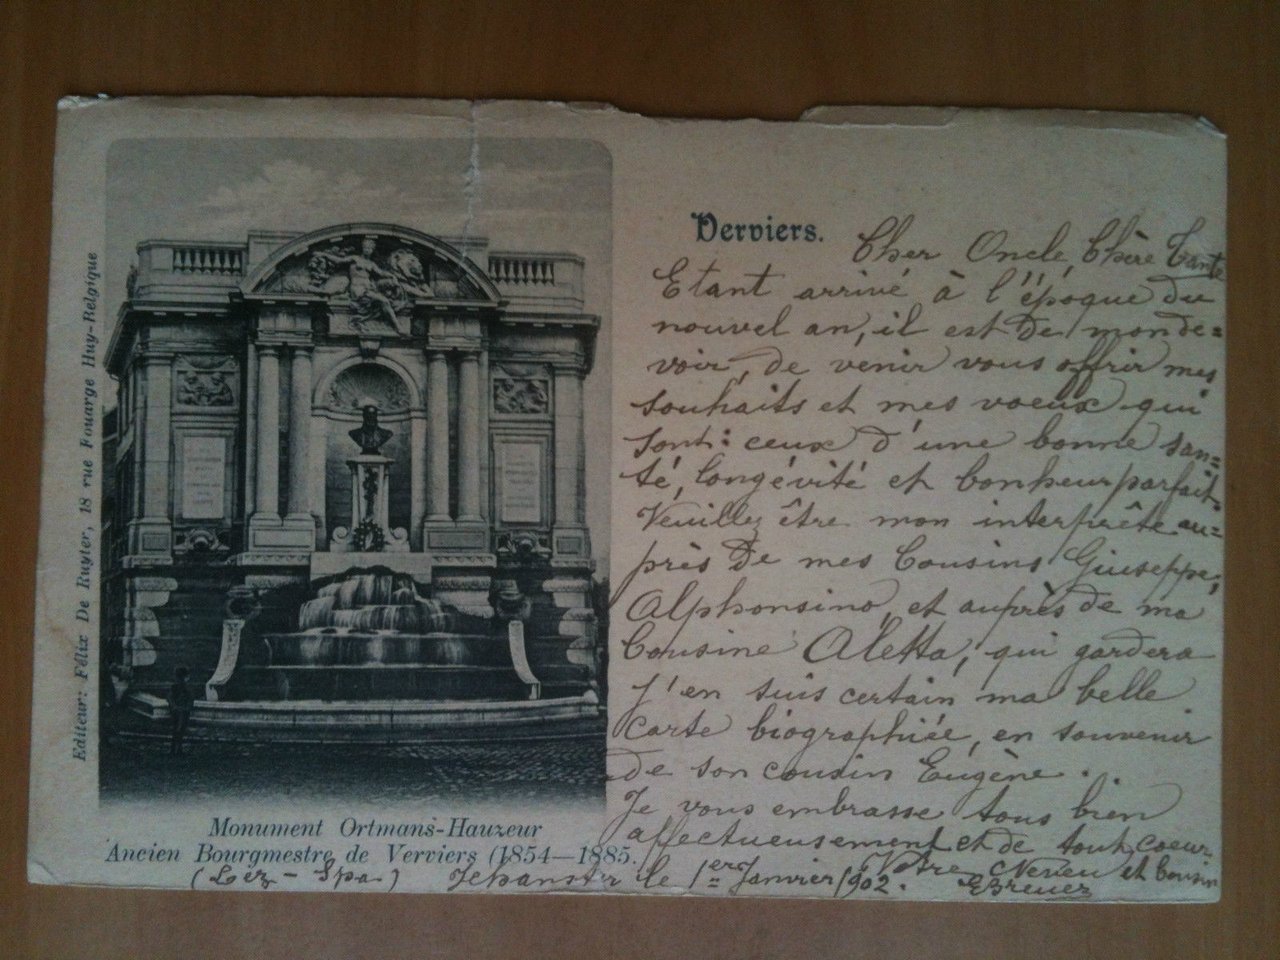 Editeur: Félix De Ruyter, 18 rue Fouarge Huy-Belgique
Monument Ortmans-Hauzeur
Ancien Bourgmestre de Verviers (1854—1885.
Verviers.
Cher Oncle, Chère Tante
Etant arrivé à l'époque du
nouvel an, il est de mon de=
voir, de venir vous offrir mes
souhaits et mes voeux qui
sont: ceux d'une bonne san=
té, longévité et bonheur parfait.
Veuillez être mon interprête au=
près de mes Cousins Giuseppe,
Alphonsino, et auprès de ma
Cousine Aletta, qui gardera
j'en suis certain ma belle
carte biographiée, en souvenir
de son cousin Eugène.
Je vous embrasse tous bien
affectueusement et de tout coeur.
Votre Neveu et Cousin
EBreuer
Jehanster le 1er Janvier 1902.
( - Spa.)